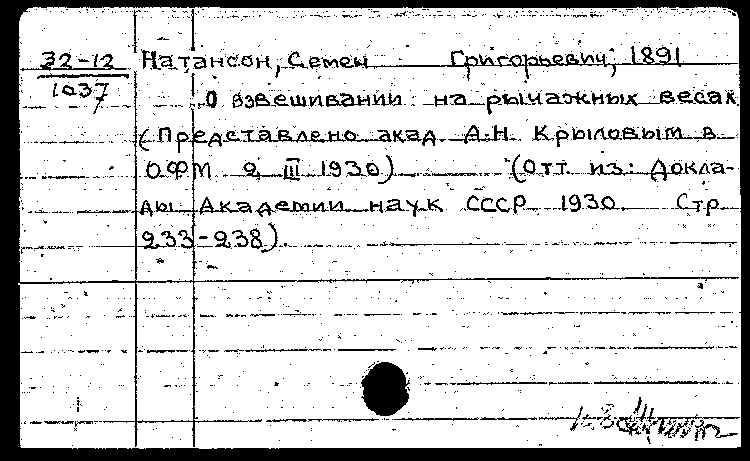 32-12 Натансон, Семен Григорьевич, 1891
1037
О взвешивании на рычажных весах
(Представлено акад. А.Н. Крыловым в
ОФМ 2, III 1930) (Отт. из: Докла-
ды Академии наук СССР 1930. Стр.
233-238).